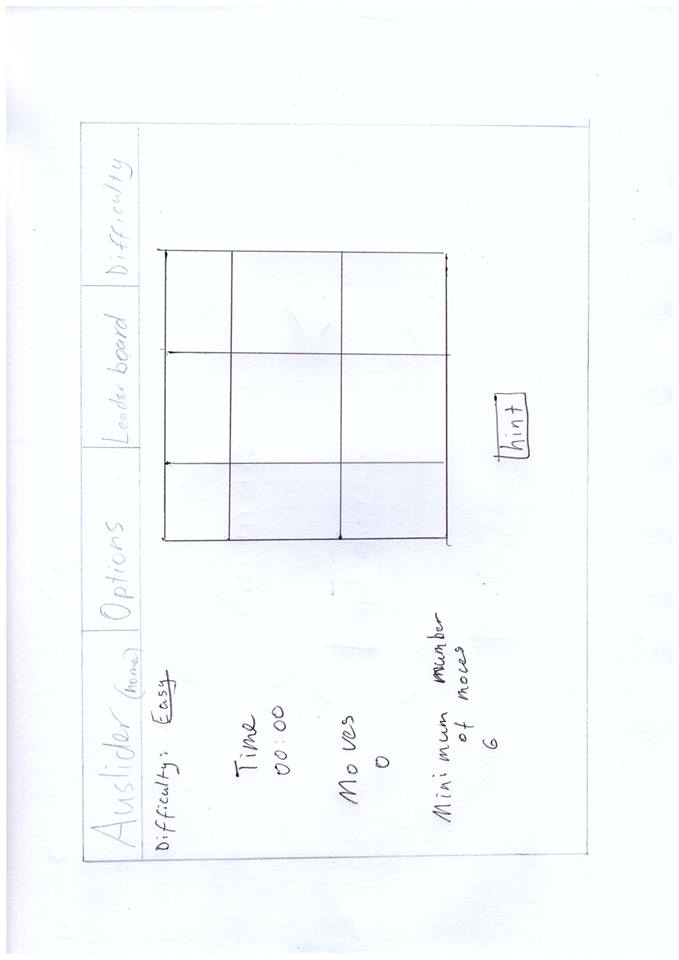 Auslider (home) Options Leader board Difficulty
Difficulty: Easy
Time
00:00
Moves
0
Minimum number
of moves
6
hint